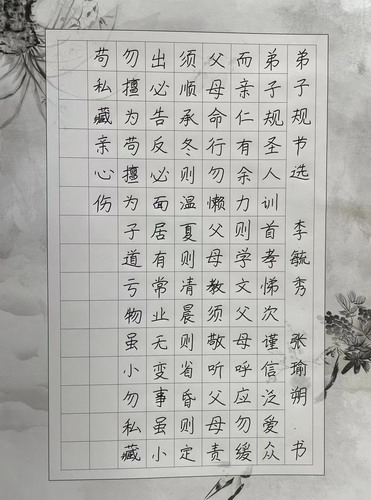 弟子规节选 李毓秀 张瑜朔 书
弟子规圣人训首孝悌次谨信泛爱众
而亲仁有余力则学文父母呼应勿缓
父母命行勿懒父母教须敬听父母责
须顺承冬则温夏则清晨则省昏则定
出必告反必面居有常业无变事虽小
勿擅为苟擅为子道亏物虽小勿私藏
苟私藏亲心伤